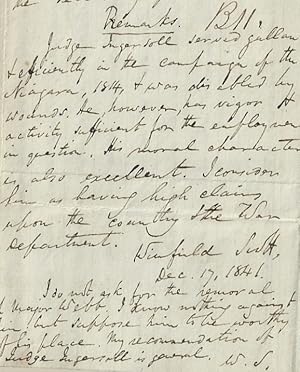 Remarks.
Judge Ingersoll served gallan
& efficiently in the campaign of the
Niagara, 1814, & was disabled by
wounds. He however, has vigor &
activity sufficient for the employmen
in question. His moral character
is also excellent. I consider
him as having high claims
upon the country & the War
Department.
Winfield Scott,
Dec. 17, 1841.
I do not ask for the removal
of Major Webb. I know nothing against
him, but suppose him to be worthy
of his place. My recommendation of
Judge Ingersoll is general. W. S.